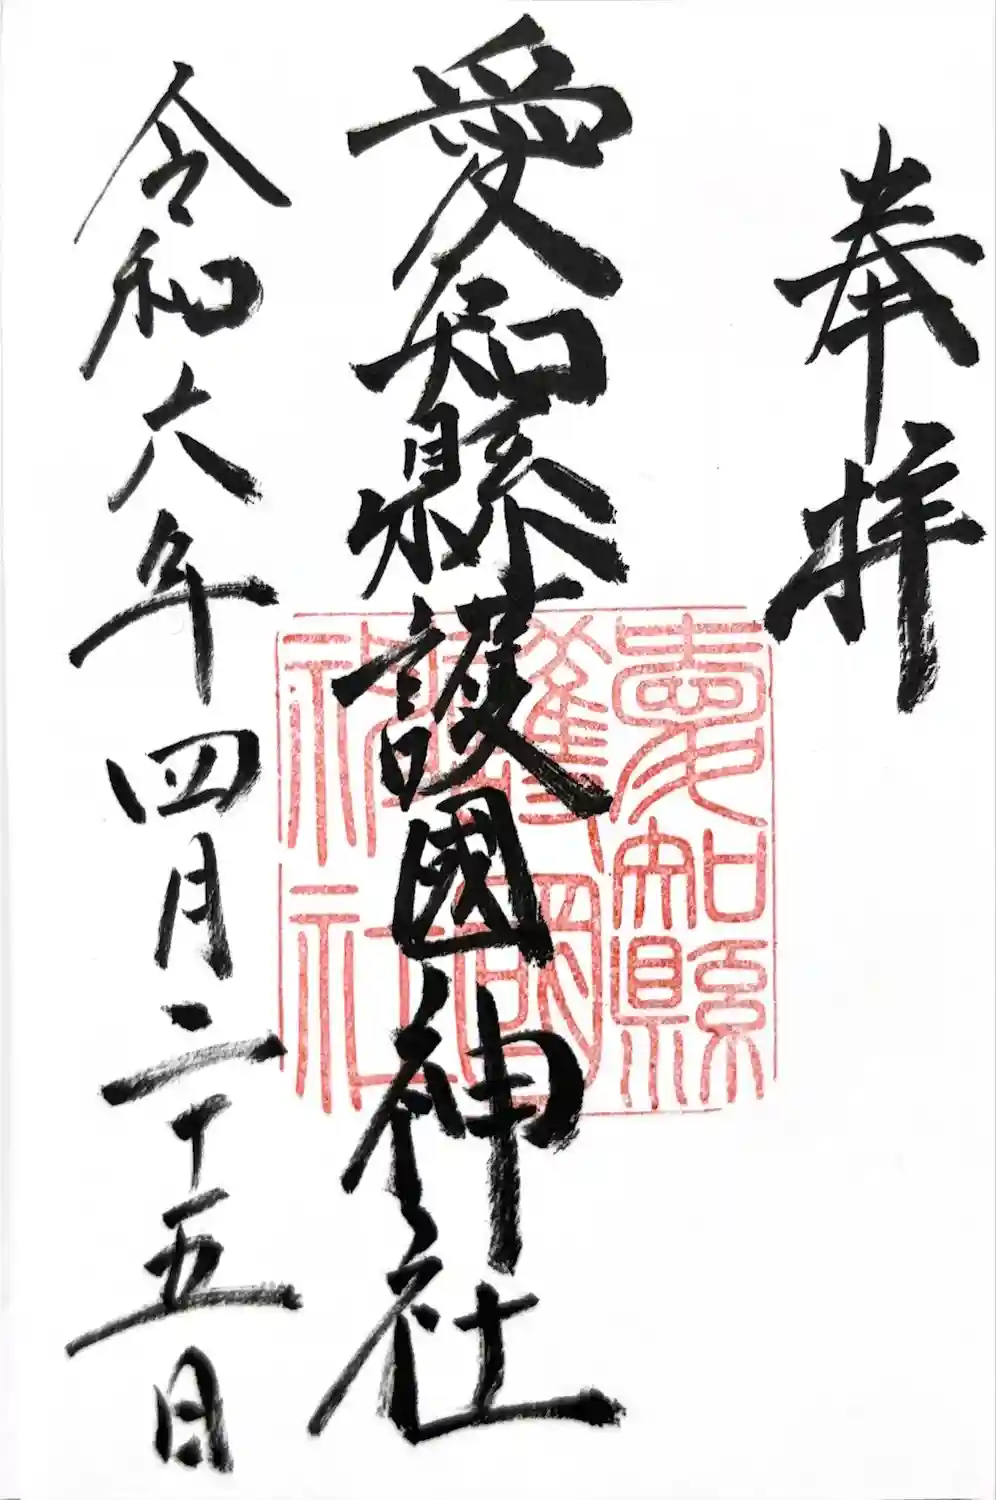 奉拝
愛知縣護國神社
愛知縣
護國
神社
令和六年四月二十五日